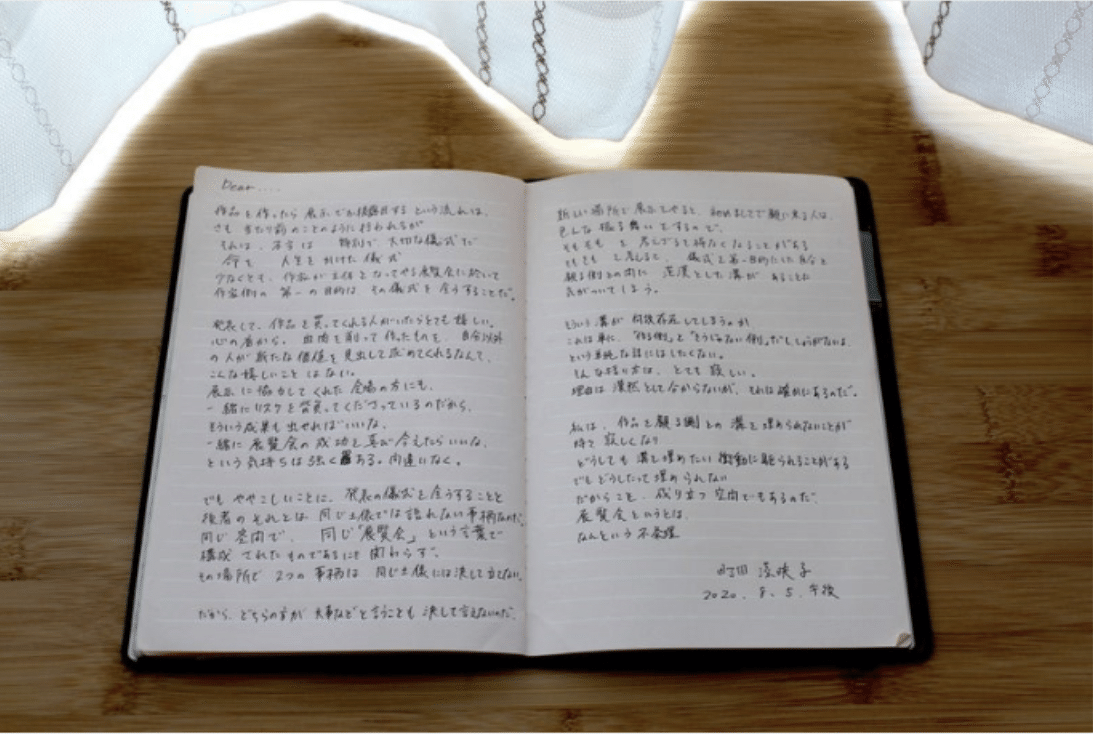 Dear....
作品を作ったら 展示でお披露目する という流れは、
さも 当たり前のことのように 扱われるが
それは、本当は 特別で 大切な儀式だ
命を 人生をかけた 儀式
少なくとも、作品が主体となってやる展覧会に於いて
作家側の 第一の目的は その儀式を 全うすることだ。
発表して、作品を買ってくれる人がいたらとても嬉しい。
心の底から。 血肉を削って作ったものを、 自分以外
の人が新たな価値を見出して 求めてくれるなんて、
こんな嬉しいこと はない。
展示に協力してくれた会場の方にも、
一緒にリスクを背負ってくださっているのだから、
そういう成果も出せればいいな、
一緒に 展覧会の成功を喜び合えたらいいな、
という気持ちは 強く ある。間違いなく。
でもややこしいことに、発表の儀式を全うすることと
後者の それとは 同じ土俵では語れない事柄なのだ。
同じ空間で、 同じ「展覧会」という言葉で
構成 されたものであるにも 関わらず。
その場所で 2つの事柄は 同じ土俵には決して立てない。
だから、どちらの方が 大事などと言うことも 決して言えないのだ。
新しい場所で 展示をやると、初めましてで観に来る人は、
色んな 振る舞いをするので、
そもそも と 感じざるを得なくなることがある
そもそも と感じると、 儀式を第一目的にした自分と
観る側との間に 漠然とした溝が あることに
気がついてしまう。
そういう溝が 何故存在してしまうのか
これは単に、「作る側」と「そうじゃない側」だもしょうがないよ、
という単純な話にはしたくない。
そんな括り方は、 とても 寂しい。
理由は漠然として分からないが、それは確かにあるのだ。
私は、作品を観る側との 溝を埋められないことが
時々 寂しくなり
どうしても 溝を埋めたい 衝動に駆られることがある
でも どうしたって 埋められない
だからこそ、成り立つ 空間でもあるのだ。
展覧会というとは、
なんという 不条理
町田 咲子
2020. 8. 5. 午後